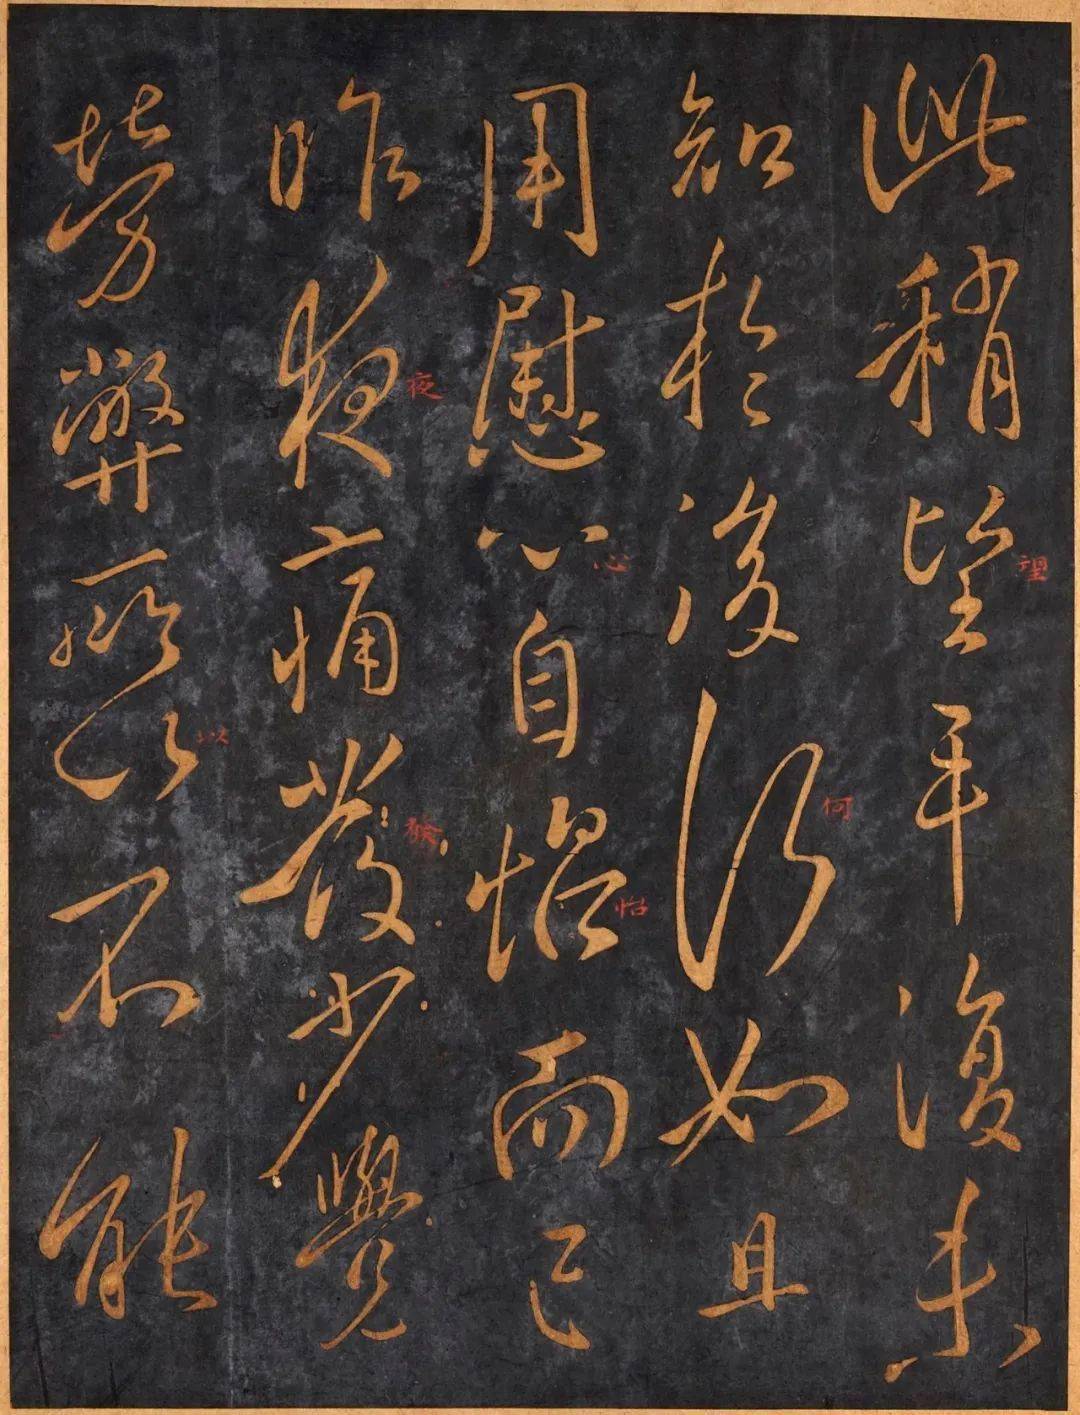 此稍望平復未
望
知於後何如且
何
用慰心自怡而已
心
怡
昨夜痛發少覺
夜
發
勞弊所以不能
以